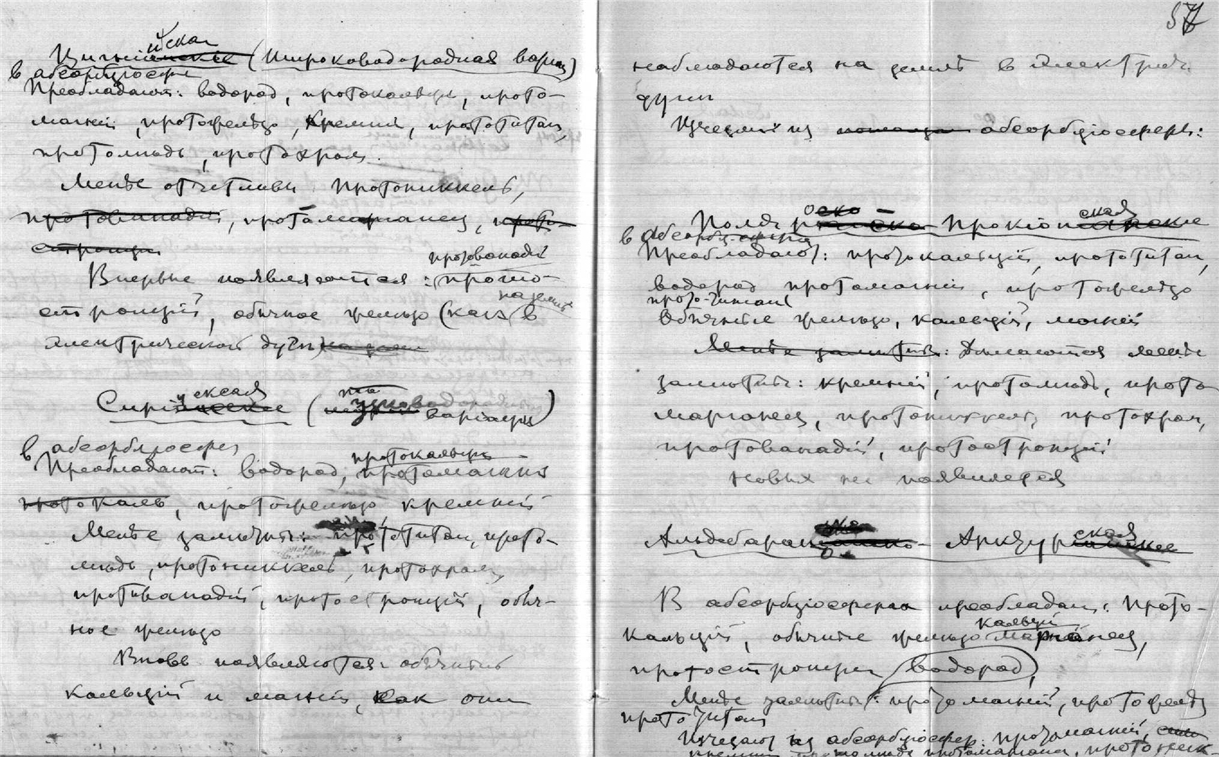 (широководородная вариац)
в абсорбциосфере
Преобладают: водород, протокальций, прото-
магний, протожелезо, Кремний, прототитан,
протомедь, протохром.
Менее отчетливы протоникkель,
протованадий, протомарганец, прото-
стронций
протованадий
Впервые появляются: прото-
на земле
стронций, обычное железо (как в
электрической дуге)
ская
Сирийские ( вариации)
в абсорбциосфере
протокальций
Преобладают: водород, протомагний
протокаль, протожелезо кремний
Менее заметны: прототитан, прото-
медь, протоникkель, протохром,
протованадий, протостронций, обыч-
ное железо
Вновь появляются: обычный
кальций и магний, как они
57
наблюдаются на земле в электрич.
дуги
Исчезли из абсорбциосферы:
ская
Проционские
в абсорбциосфере
Преобладают: протокальций, прототитан,
водород протомагний, протожелезо
прото-титан
Обычные железо, кальций, магний
Менее заметны: Делаются менее
заметны: кремний, протомедь, прото
марганец, протоникkель, протохром,
протованадий, протостронций
новых не появляется
ско ская
Альдебаран Арктур
В абсорбциосферах преобладают: прото-
кальций
кальций, обычные железо марганец,
протостронций водород,
Менее заметны: протомагний, протожелезо
прототитан
Исчезают из абсорбциосфер: протомагний,
кремний протомедь протомарганец, протоник-